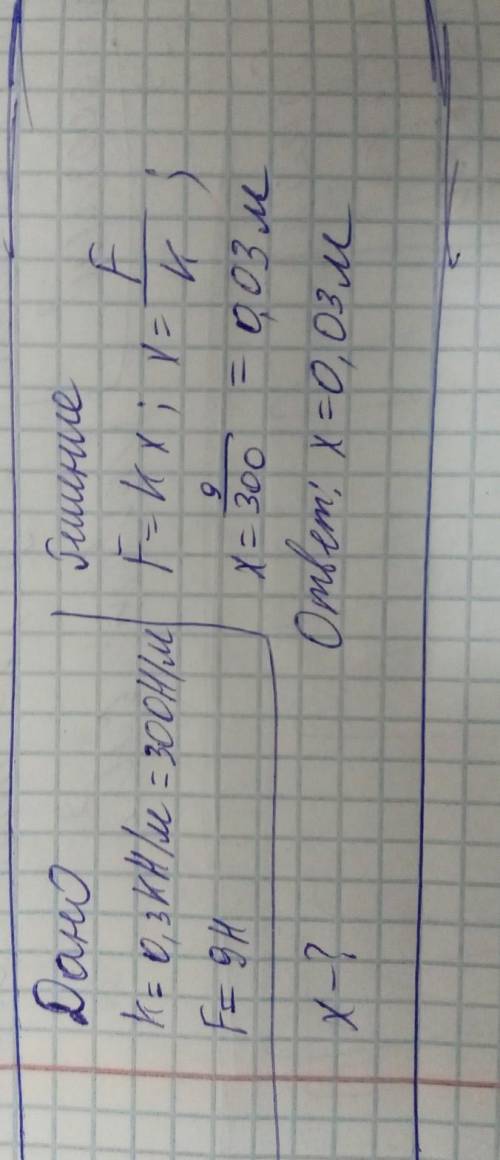 Дано
K = 0,3 КН/м = 300Н/м
F = 9Н
x - ?
Решение
F = K x ; x = F/K ;
x = 9/300 = 0,03 м
Ответ: x = 0,03 м